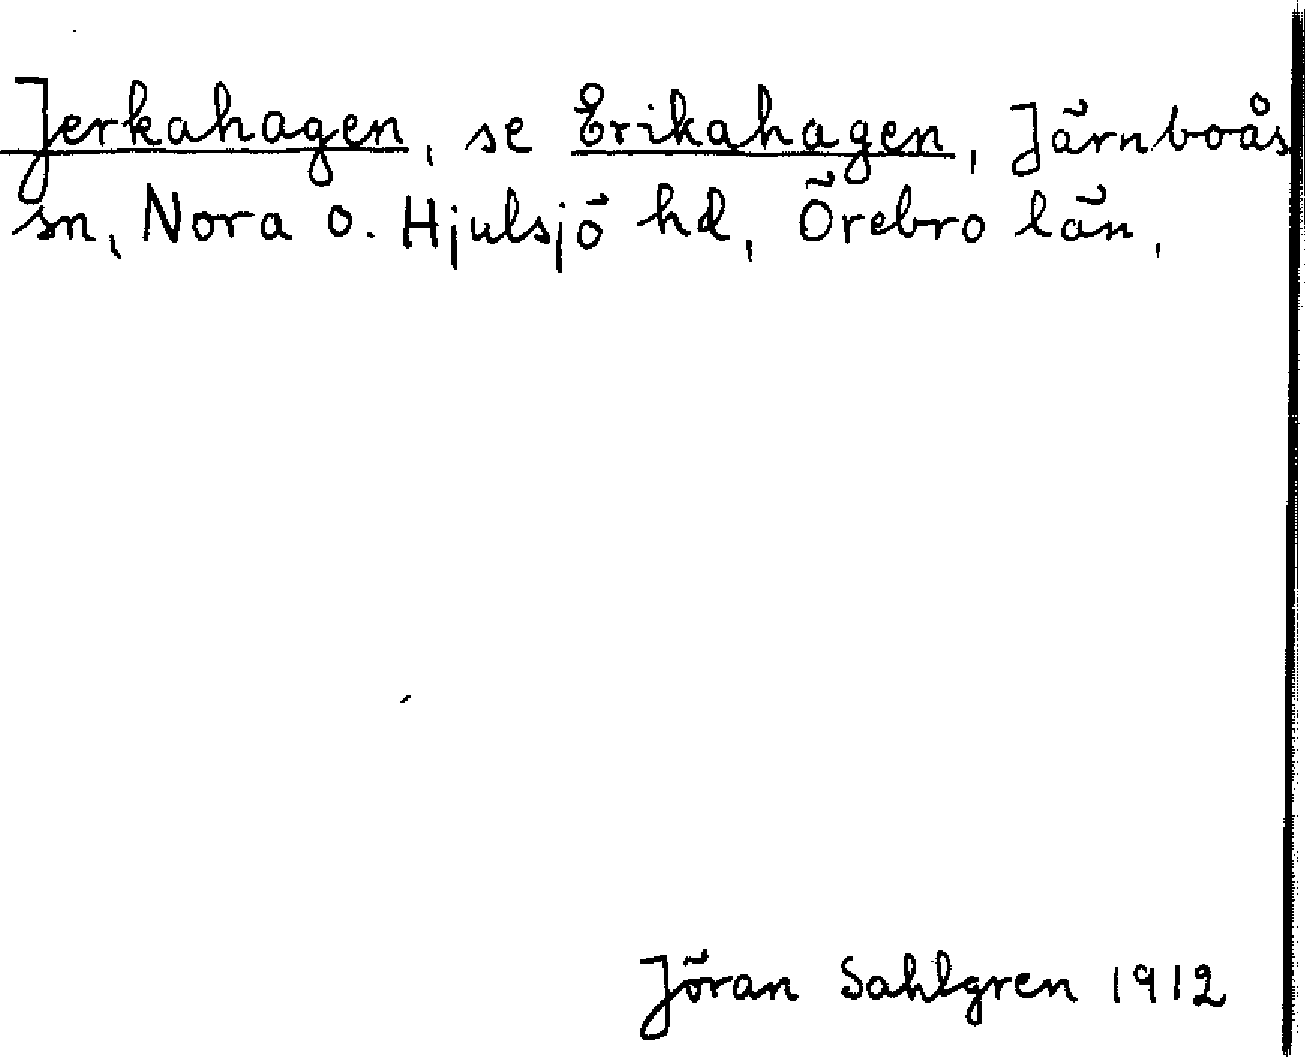 Jerkahagen, se Erikahagen, Järnboås
sn, Nora o. Hjulsjö hd, Örebro län,
Jöran Sahlgren 1912